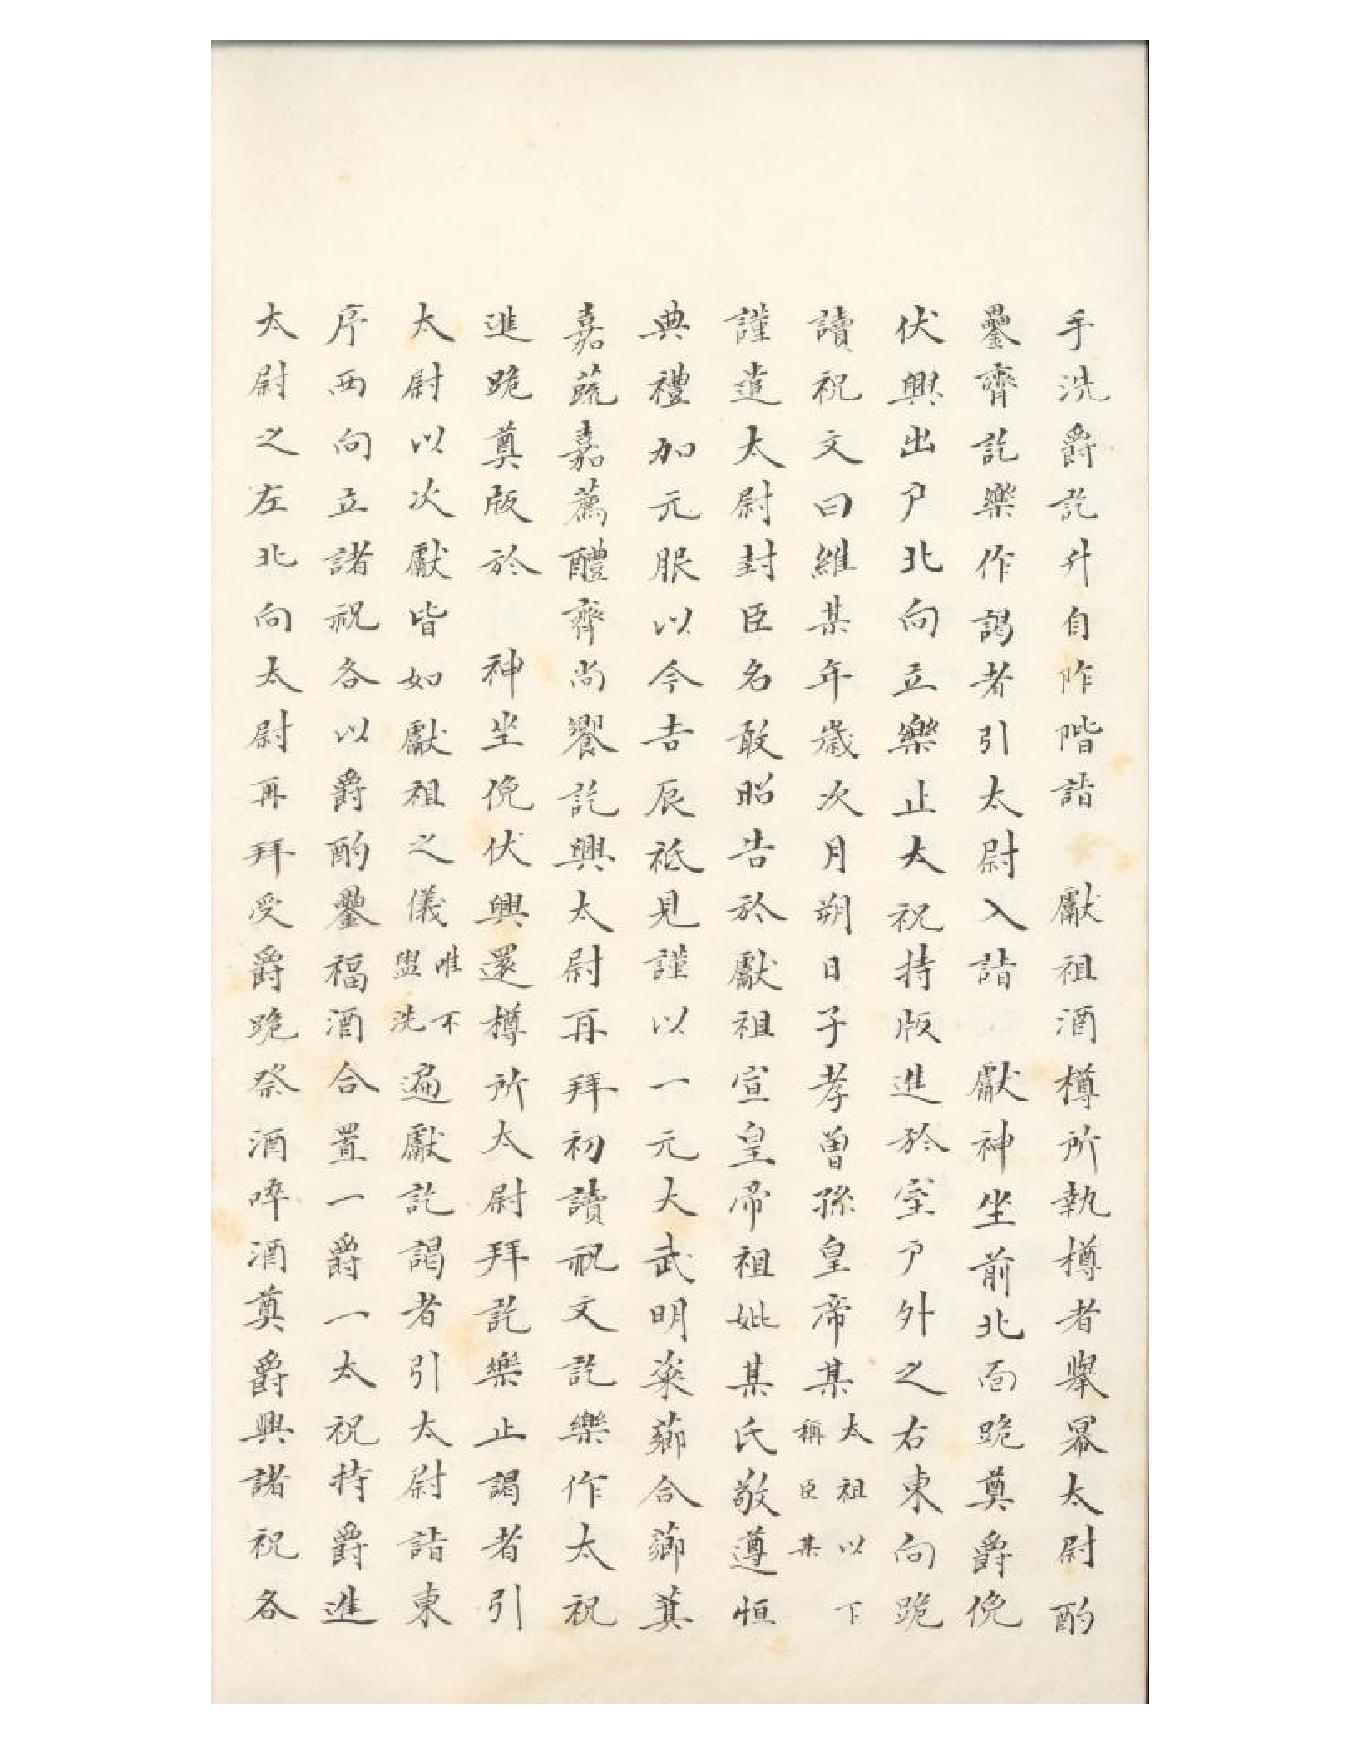 手洗爵訖升自阼階詣　獻祖酒樽所執樽者舉冪太尉酌
罍齊訖樂作謁者引太尉入詣　獻神坐前北面跪奠爵俛
伏興出戸北向立樂止大祝持版進於室戸外之右東向跪
讀祝文曰維某年歲次月朔日子孝曾孫皇帝某太祖以下稱臣某
謹遣太尉封臣名敢昭告於獻祖宣皇帝祖妣某氏敬遵恒
典禮加元服以今吉辰祗見謹以一元大武明粢薌合薌萁
嘉蔬嘉薦醴齊尚饗訖興太尉再拜初讀祝文訖樂作太祝
進跪奠版於　神坐俛伏興還樽所太尉拜訖樂止謁者引
太尉以次獻皆如獻祖之儀唯不盥洗遍獻訖謁者引太尉詣東
序西向立諸祝各以爵酌罍福酒合置一爵一太祝持爵進
太尉之左北向太尉再拜受爵跪祭酒啐酒奠爵興諸祝各